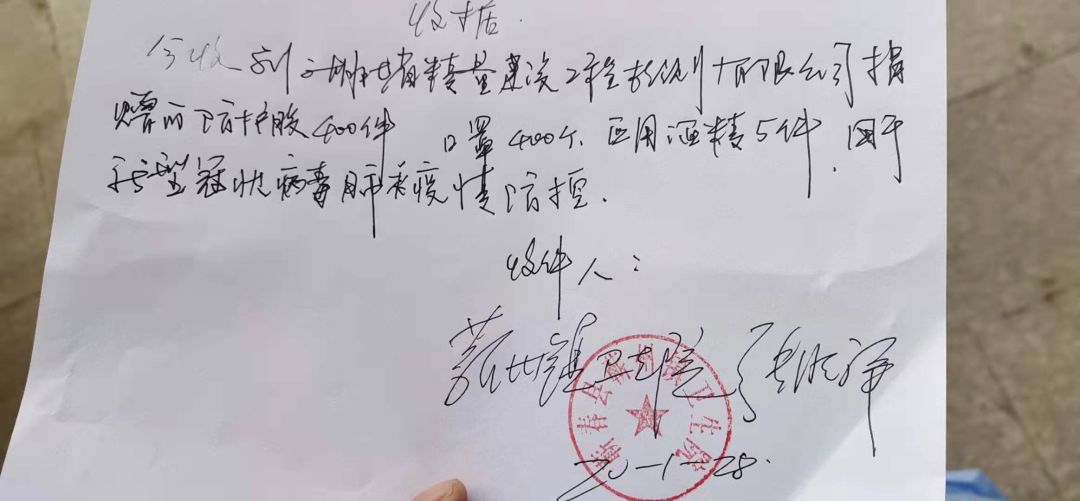 收据
今收到湖北省精量建设工程有限公司捐
赠的防护服400件 口罩400个 医用酒精5件,用于
新型冠状病毒肺炎疫情防控.
收件人:
蕲州镇卫生院
蕲春县蕲州镇卫生院
20-1-28.